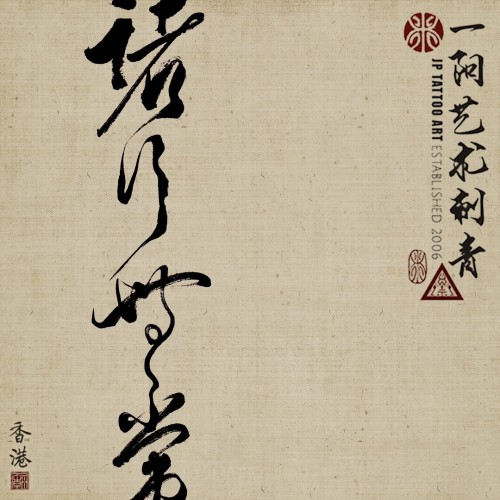 一阿艺术刺青
JP TATTOO ART ESTABLISHED 2006
诸行無常
香港